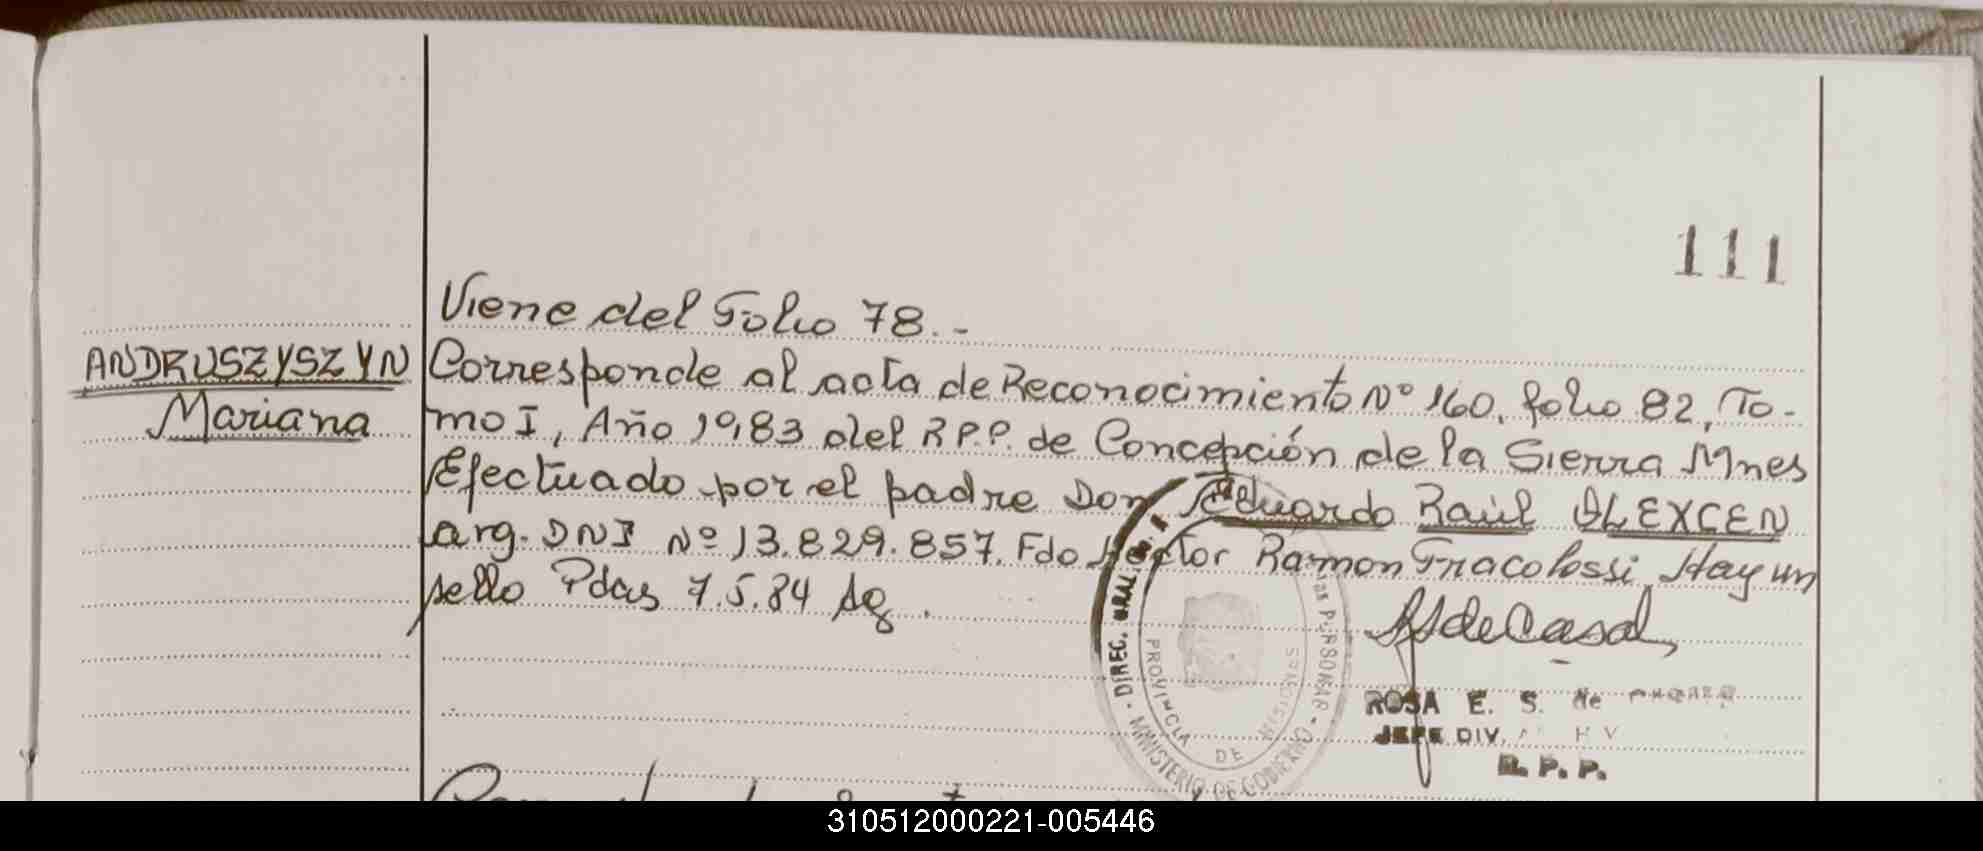 111
Viene del Folio 78.-
ANDRUSZYSZYN
Mariana
Corresponde al acta de Reconocimiento Nº 160, folio 82, To-
mo I, Año 1983 del R.P.P. de Concepción de la Sierra Mnes
Efectuado por el padre Don Eduardo Raúl OLEXCEN
arg. DNI Nº 13.829.857. Fdo Hector Ramon Fracolossi. Hay un
sello Pdas 7.5.84
DIREC. GRAL.
PERSONAS
PROVINCIA DE MISIONES
MINISTERIO DE GOBIERNO
de Casal
ROSA E. S. de
JEFE DIV.
R. P. P.
310512000221-005446